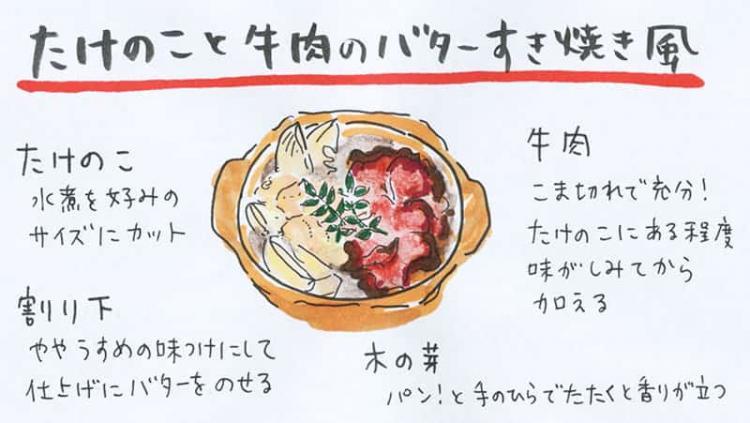 たけのこと牛肉のバターすき焼き風
たけのこ
水煮を好みの
サイズにカット
割り下
ややうすめの味つけにして
仕上げにバターをのせる
牛肉
こま切れで充分！
たけのこにある程度
味がしみてから
加える
木の芽
パン！と手のひらでたたくと香りが立つ